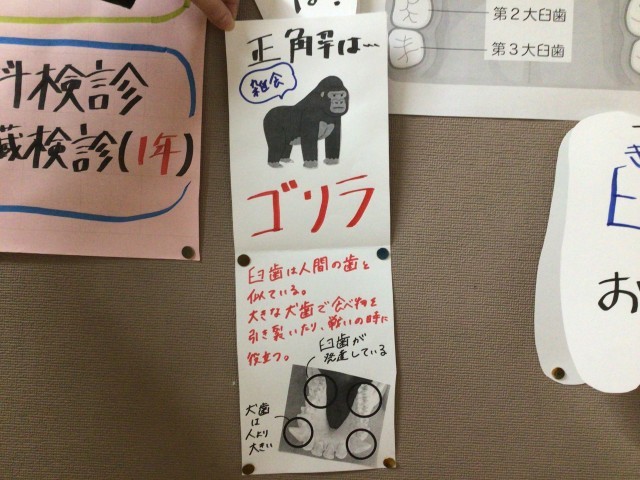 正解は…
雑食
ゴリラ
臼歯は人間の歯と
似ている。
大きな犬歯で食べ物を
引き裂いたり、戦いの時に
役立つ。
臼歯が
発達している
犬歯
は
人より
大きい
科検診
蔵検診(1年)
第2大臼歯
第3大臼歯
お